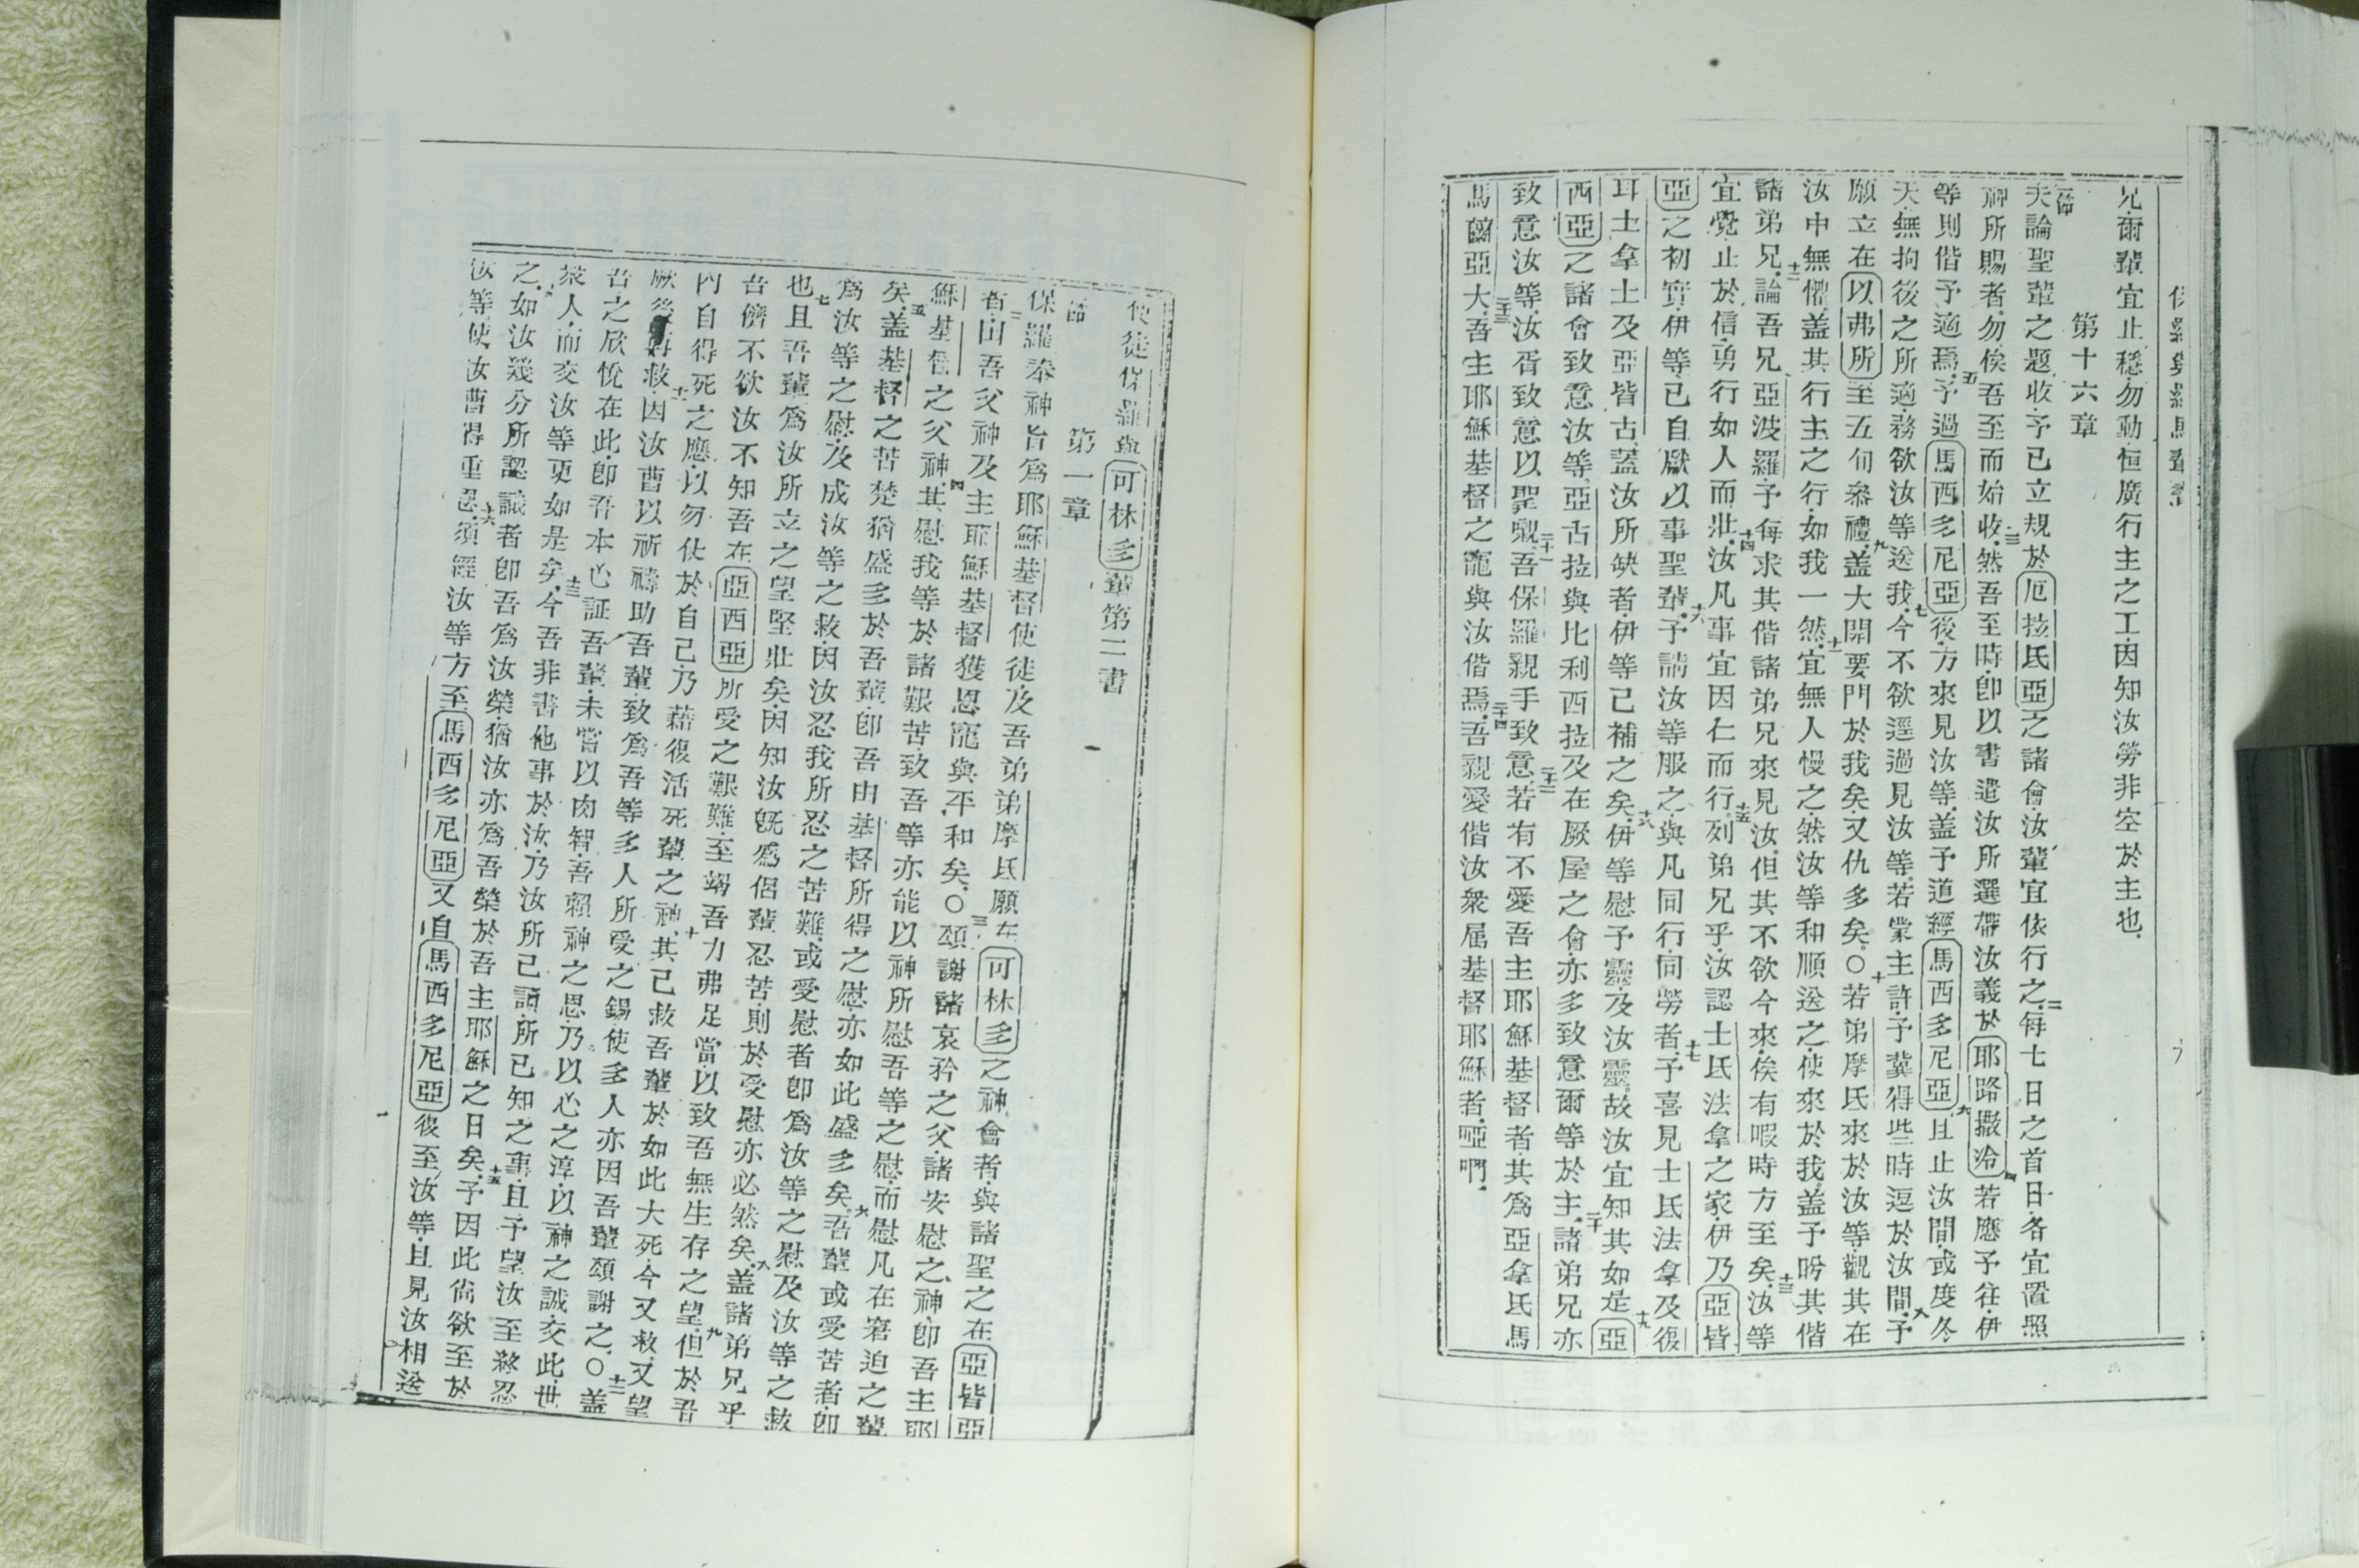 兄爾輩宜止穩勿動恒廣行主之工因知汝勞非空於主也
第十六章
一節夫論聖輩之題收予已立規於厄拉氏亞之諸會汝輩宜依行之二每七日之首日各宜置照
神所賜者勿俟吾至而始收三然吾至時卽以書遣汝所選帶汝義於耶路撒冷四若應予往伊
等則偕予適焉五予過馬西多尼亞後方來見汝等蓋予道經馬西多尼亞六且止汝間或度冬
天無拘後之所適務欲汝等送我七今不欲逕過見汝等若蒙主許予冀得些時逗於汝間八予
願立在以弗所至五旬叅禮九蓋大開要門於我矣又仇多矣○十若弟摩氏來於汝等觀其在
汝中無懼蓋其行主之行如我一然十一宜無人慢之然汝等和順送之使來於我蓋予盻其偕
諸弟兄十二論吾兄亞波羅予每求其偕諸弟兄來見汝但其不欲今來俟有暇時方至矣十三汝等
宜覺止於信勇行如人而壯十四汝凡事宜因仁而行十五列弟兄乎汝認士氏法拿之家伊乃亞皆
亞之初實伊等已自厭以事聖輩十六予請汝等服之與凡同行同勞者十七予喜見士氏法拿及復
耳土拿士及亞皆古蓋汝所缺者伊等已補之矣十八伊等慰予靈及汝靈故汝宜知其如是十九亞
西亞之諸會致意汝等亞古拉與比利西拉及在厥屋之會亦多致意爾等於主二十諸弟兄亦
致意汝等汝胥致意以聖覿二十一吾保羅親手致意二十二若有不愛吾主耶穌基督者其爲亞拿氏馬
馬蘭亞大二十三吾主耶穌基督之寵與汝偕焉二十四吾親愛偕汝衆屆基督耶穌者啞門
使徒保羅與可林多輩第二書
第一章
一節保羅奉神旨爲耶穌基督使徒及吾弟弟摩氏願在可林多之神會者與諸聖之在亞皆亞
者二由吾父神及主耶穌基督獲恩寵與平和矣○三頌謝諸哀矜之父諸安慰之神卽吾主耶
穌基督之父神四其慰我等於諸艱苦致吾等亦能以神所慰吾等之慰而慰凡在窘迫之輩
矣五蓋基督之苦楚猶盛多於吾輩卽吾由基督所得之慰亦如此盛多矣六吾輩或受苦者卽
爲汝等之慰及成汝等之救因汝忍我所忍之苦難或受慰者卽爲汝等之慰及汝等之救
也七且吾輩爲汝所立之望堅壯矣因知汝旣爲侶輩忍苦則於受慰亦必然矣八蓋諸弟兄乎
吾儕不欲汝不知吾在亞西亞所受之艱難至竭吾力弗足當以致吾無生存之望九但於吾
內自得死之應以勿仗於自己乃藉復活死輩之神十其已救吾輩於如此大死今又救又望
厥後再救十一因汝曹以祈禱助吾輩致爲吾等多人所受之錫使多人亦因吾輩頌謝之○十二蓋
吾之欣悅在此卽吾本心証吾輩未嘗以肉智吾賴神之恩乃以心之淳以神之誠交此世
衆人而交汝等更如是矣十三今吾非書他事於汝乃汝所已讀所已知之事且予望汝至終忍
之十四如汝幾分所認識者卽吾爲汝榮猶汝亦爲吾榮於吾主耶穌之日矣十五予因此尙欲至於
汝等使汝曹得重恩十六須經汝等方至馬西多尼亞又自馬西多尼亞後至汝等且見汝相送